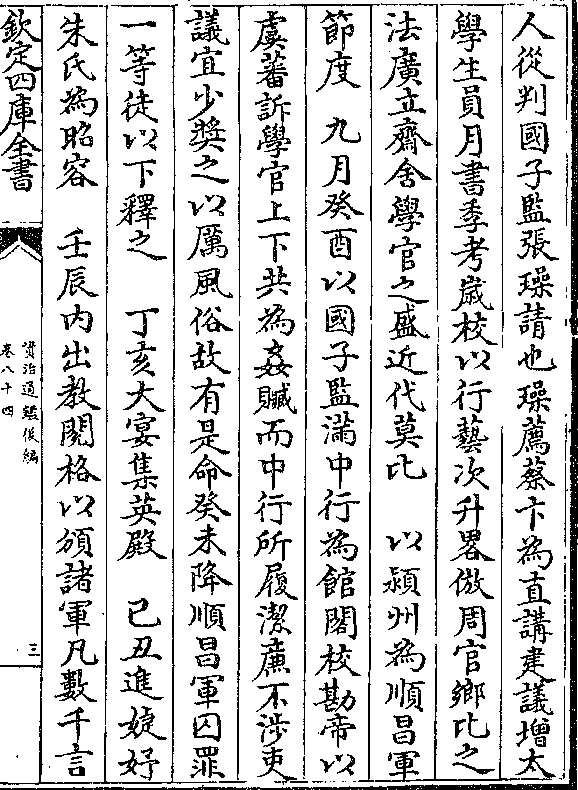 人從判國子監張璪請也璪薦蔡卞為直講建議增太
學生員月書季考嵗校以行藝次升畧倣周官鄉比之
法廣立齋舍學官之盛近代莫比　以潁州為順昌軍
節度　九月癸酉以國子監滿中行為館閣校勘帝以
虞蕃訴學官上下共為姦贓而中行所履潔廉不涉吏
議宜少奬之以厲風俗故有是命癸未降順昌軍囚罪
一等徒以下釋之　丁亥大宴集英殿　己丑進婕妤
朱氏為昭容　壬辰内出教閲格以頒諸軍凡數千言
欽定四庫全書
資治通鑑後編
卷八十四
三